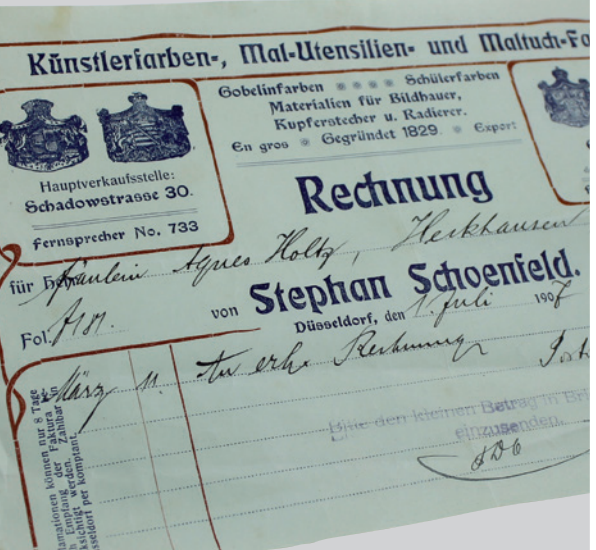 Künstlerfarben-, Mal-Utensilien- und Maltuch-Fa
Gobelinfarben Schülerfarben
Materialien für Bildhauer,
Kupferstecher u. Radierer.
En gros Gegründet 1829. Export
Hauptverkaufsstelle:
Schadowstrasse 30.
Fernsprecher No. 733
Rechnung
für Fräulein Agnes Holtz,
von Stephan Schoenfeld.
Fol.
Düsseldorf, den 1. Juli 1907
März 11. An erh. Rechnung
Bitte den kleinen Betrag in Bri
einzusenden.
lamationen können nur 8 Tage
h Empfang der Faktura
ksichtigt werden. Zahlbar in
sseldorf per komptant.